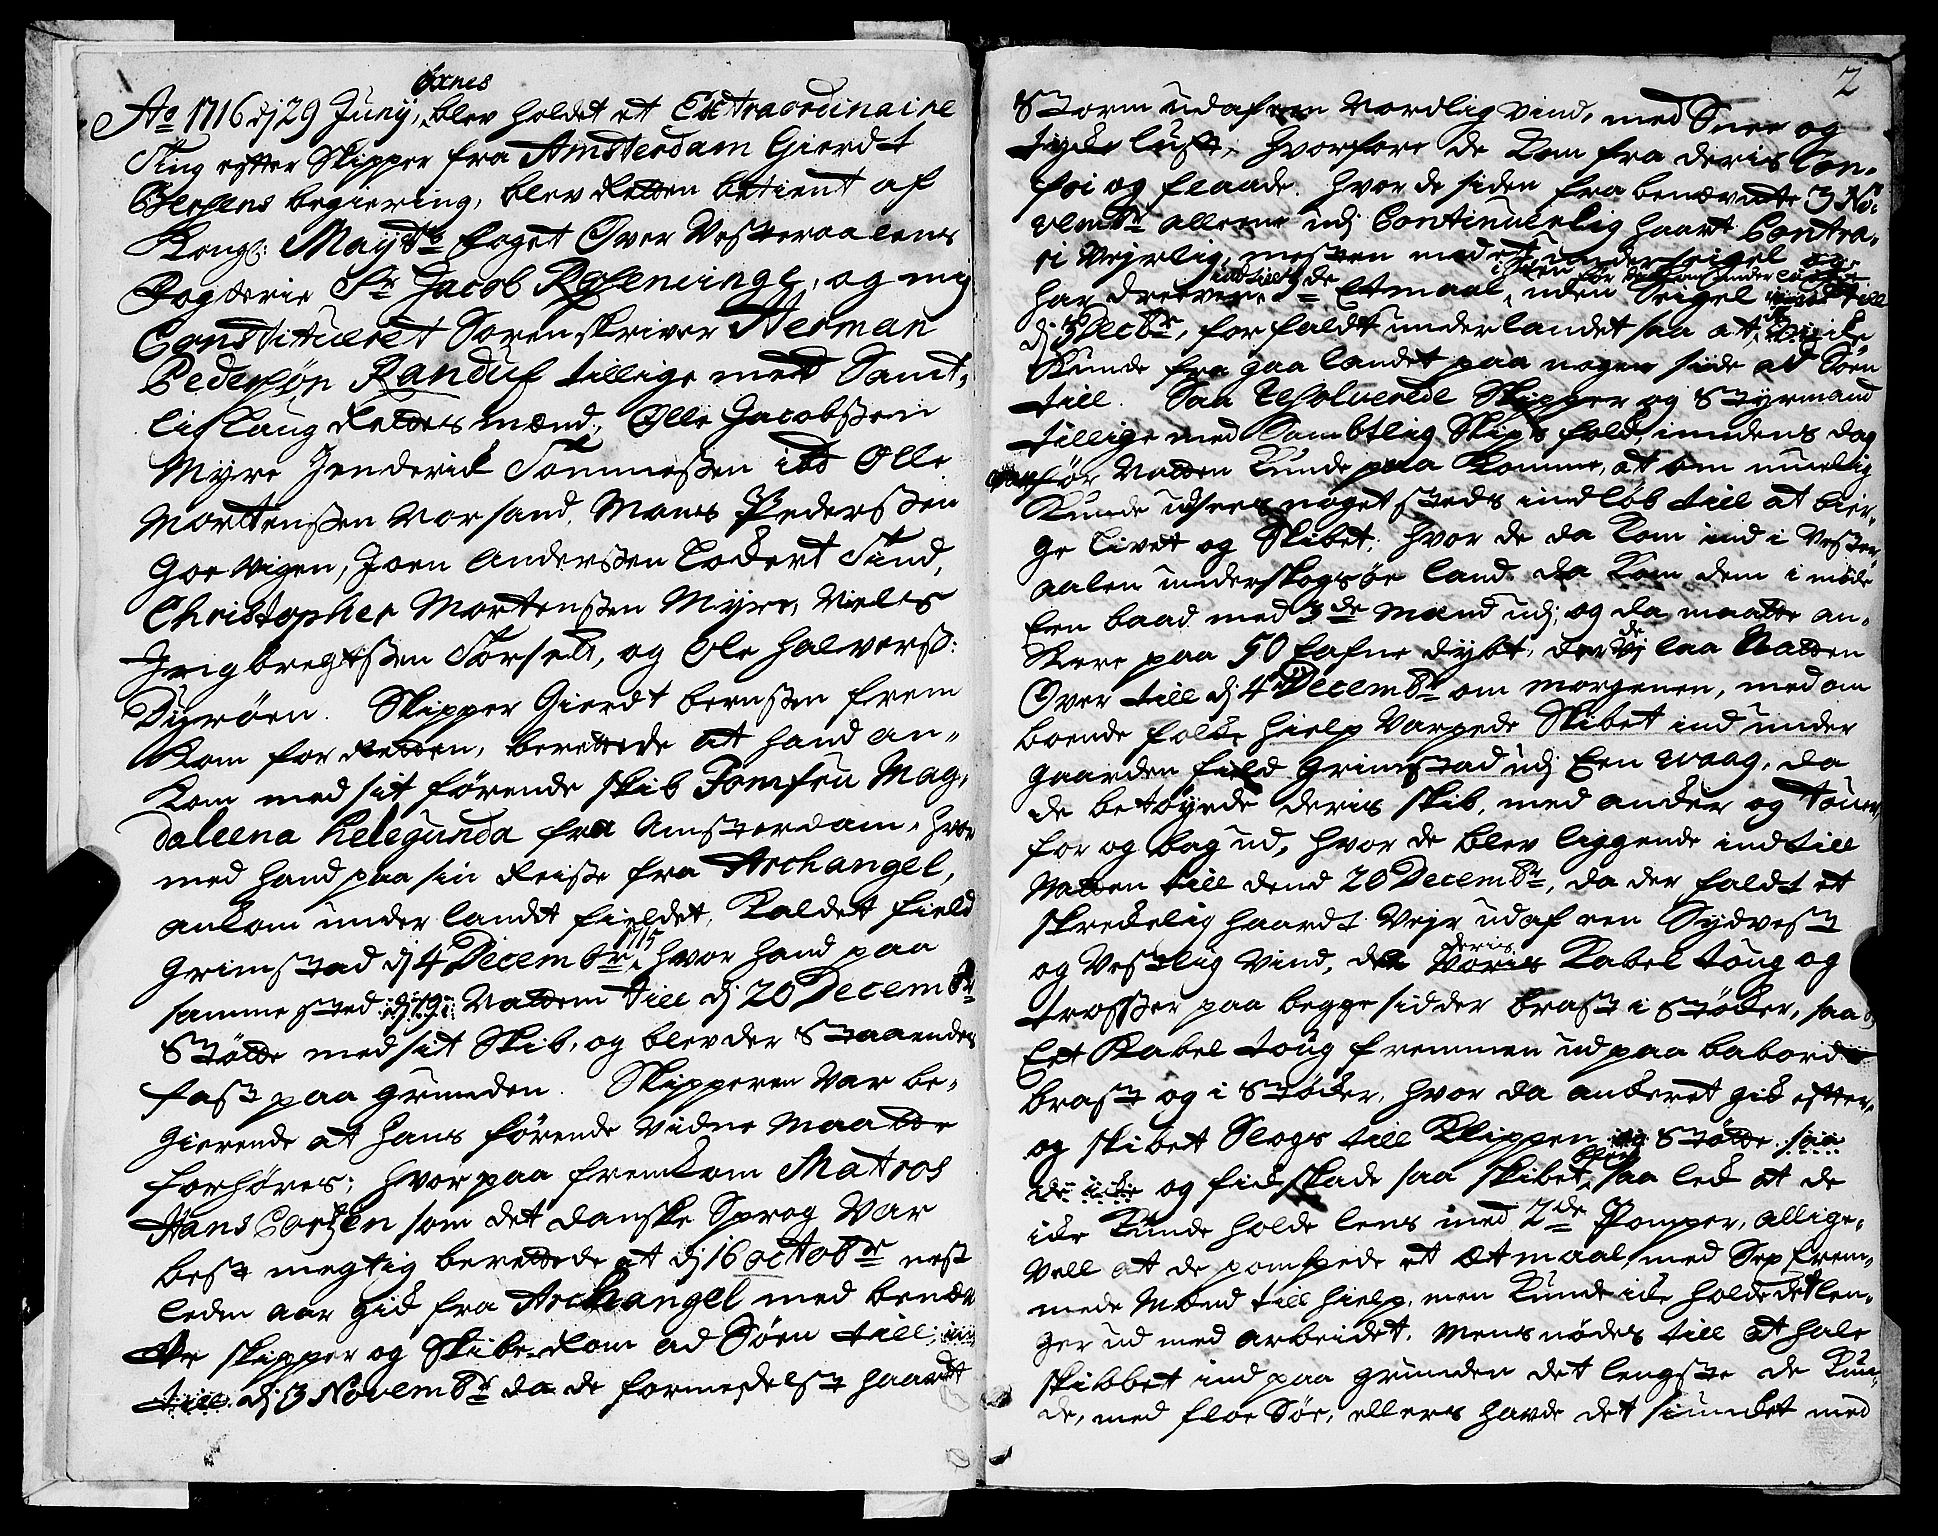 Øxnes
Ao 1716 dj 29 Junij, blev holdet et Extraordinaire
Ting efter Skipper fra Amsterdam Gierdt
Bersens begiering, blev Retten betient af
Kongl: Maytts foget Over Vesteraalens
Fogderie Sr Jacob Rosenvinge, og mig
Constitueret Sorenskriver Herman
Pedersøn Randulf tillige med Samt-
lif laug Rettes mænd, Olle Jacobssen
Myre Henderick Tommessen ibd Olle
Mortenssen Norsand, Mons Pederssen
Goe vigen, Joen Anderssen Lockert Sund,
Christopher Mortenssen Myre, Niels
Ingbregtssen Sørsett, og Ole Halverss:
Dyrøen. Skipper Gierdt bernssen frem
Kom for Retten, berettede at hand an-
Kom med sit førende skib Jomfru Mag-
daleena kelegunda fra Amsterdam, hvor
med hand paa sin Reise fra Archangel,
ankom under landet fieldet, Kaldet field
Grimstad dj 4 Decembr 1715, hvor hand paa
samme sted Natten till dj 20 Decembr
Støtte med sit Skib, og blev der Staaendes
fast paa grunden. Skipperen var be-
gierende at hans førende vidne maatte
forhøres; hvor paa fremkom Matros
Hans som det danske Sprog var
best megtig berettede at dj 16 octobr nest
leden aar gick fra Archangel med benæv
te skipper og Skibe-kom ad Søen till
till dj 3 Novembr da de formedelst haardt
2
Storm ud af een Nordlig vind, med Snee og
tycke luft, hvorfore de kom fra deris Con-
foi og flaade. Hvor de siden fra benævnte 3 No-
vembr alleene udj Continuerlig haart Contra-
ri Vejrlig, mesten med et underseigel og
indtill de iten for
har drevene Etmaal, uden Seigel till
dj 3 Decbr, forfaldt under landet saa at de icke
Kunde fra gaa landet paa nogen side ad Søen
till. Saa Resolverede Skipper og Styrmand
tillige med Sambtlig Skips folck, imedens dag
var før Natten Kunde paa Komme, at om muelig
Kunde udsees noget steds indløb till at bier-
ge livet og Skibet, hvor de da kom ind i Vester
aalen under skogsøe land da Kom dem i møde
Een baad med 3de mænd udj, og da maatte an-
de
kere paa 50 fafne dybt, der laa Natten
Over till dj 4 Decembr om morgenen, med om
boende folckes hielp varpede Skibet ind under
gaarden field Grimstad udj Een waag, da
de betøyede deris skib, med ancker og touer,
for og bag ud, hvor de blev liggende indtill
Natten till dend 20 Decembr, da der faldt et
skreckelig haardt Vejr ud af een Sydvest
deris
og Vestlig vind, da voris Kabel toug og
trosser paa begge sidder brast i Støcker, saa
Eet Kabel toug fremmen ud paa babord
brast og i Støcker, hvor da anckeret gick efter
og skibet Slogs till Klippen og Støtte saa
blev
de icke og fick skade saa skibet saa leck at de
icke kunde holde lens med 2de Pomper, allige-
vell at de pompede et ætmaal, med Sex frem-
mede Mænd till hielp, men kunde icke holde det len-
ger ud med arbeidet. Mens nødes till at hale
skibbet ind paa grunden det lengste de Kun-
de, med floe Søe, ellers havde det siuncket med